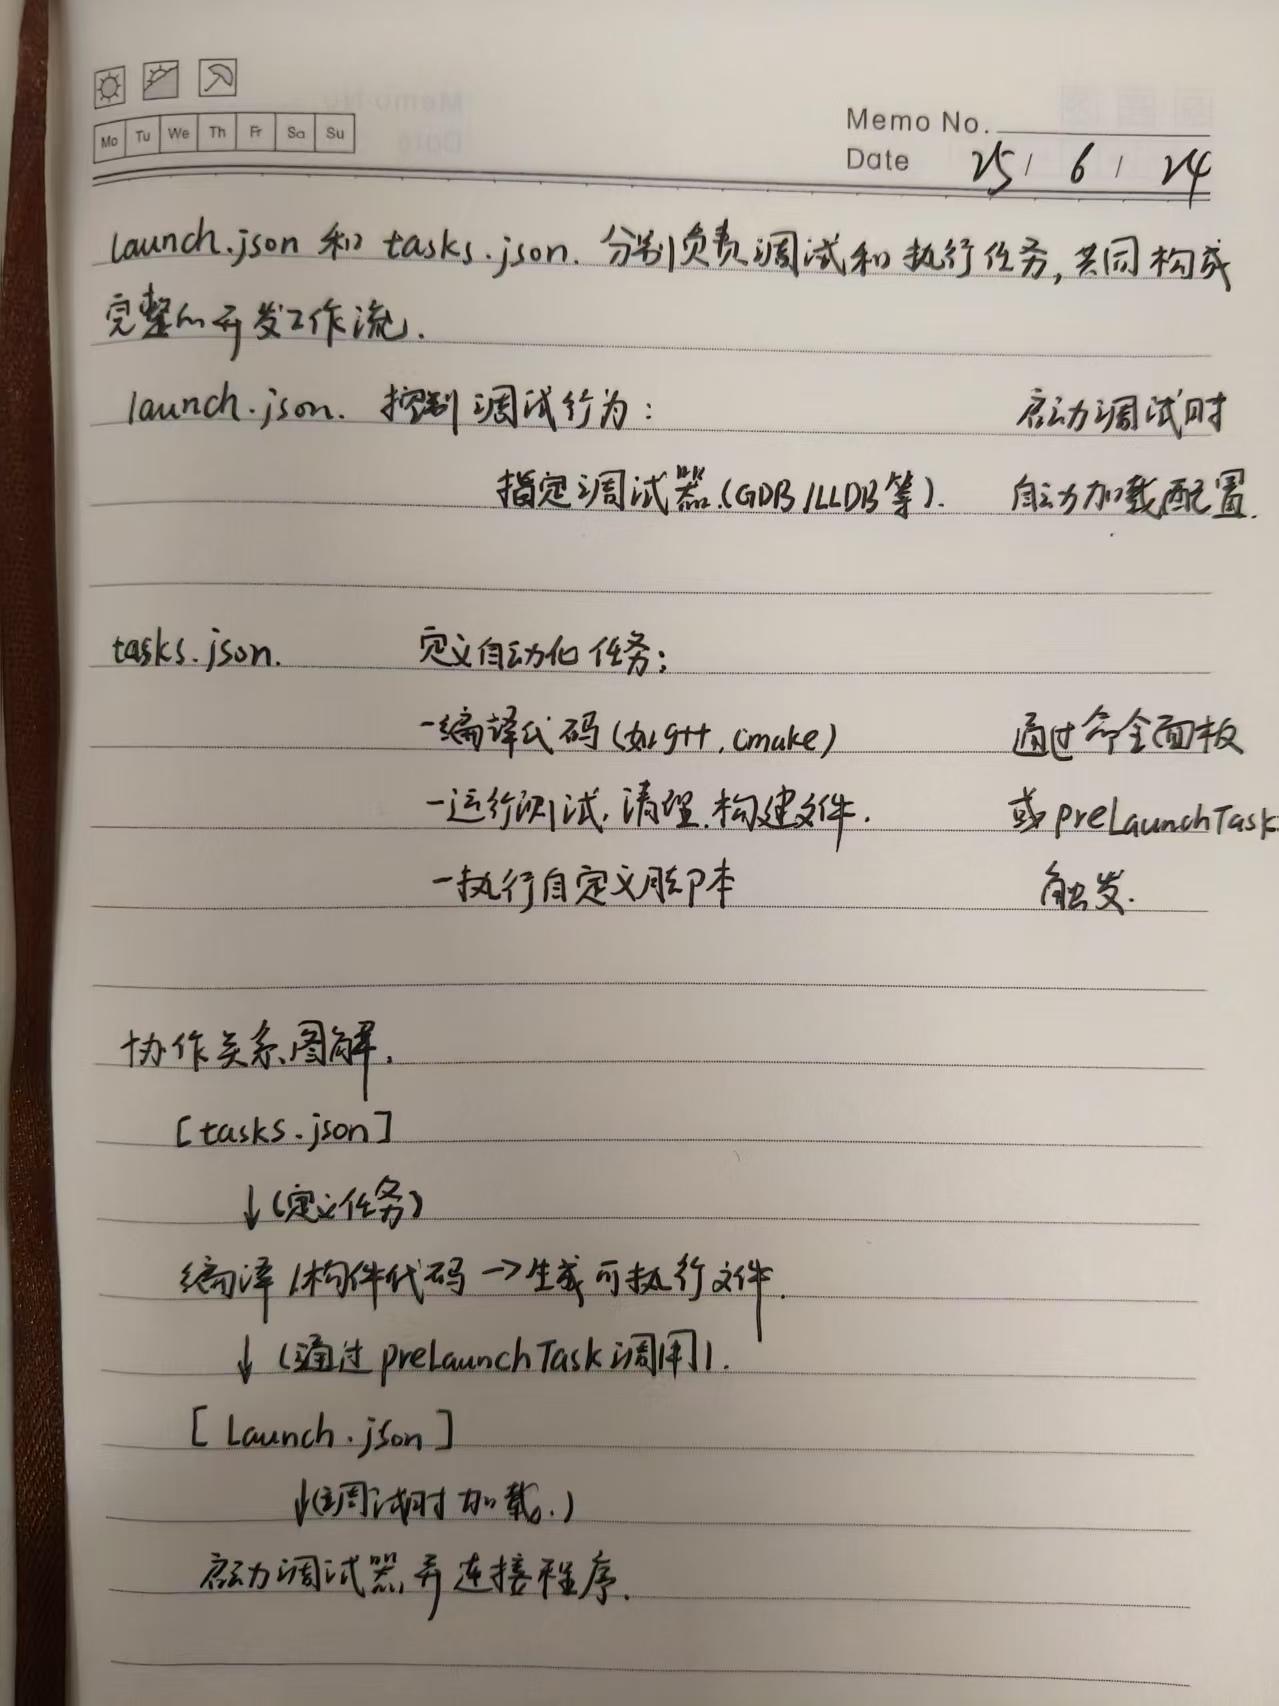 Mo Tu We Th Fr Sa Su
Memo No.
Date 25 / 6 / 24
launch.json 和 tasks.json. 分别负责调试和执行任务,共同构成
完整的开发工作流.
launch.json. 控制调试行为: 启动调试时
指定调试器.(GDB/LLDB等). 自动加载配置.
tasks.json. 定义自动化任务:
-编译代码(如g++,cmake) 通过命令面板
-运行测试.清理.构建文件. 或preLaunchTask
-执行自定义脚本 触发.
协作关系图解.
[tasks.json]
↓(定义任务)
编译/构件代码→生成可执行文件.
↓(通过preLaunchTask调用).
[Launch.json]
↓(调试时加载.)
启动调试器,并连接程序.